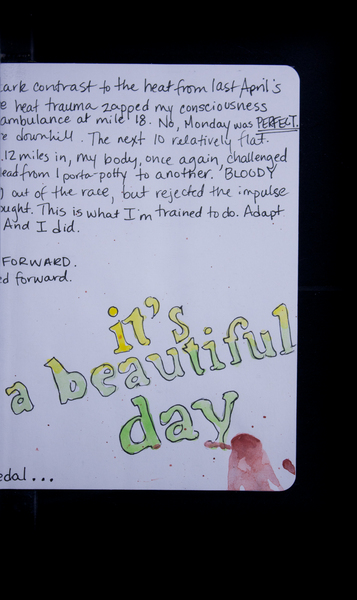 ark contrast to the heat from last April's
e heat trauma zapped my consciousness
ambulance at mile 18. No, Monday was PERFECT.
e downhill. The next 10 relatively flat.
12 miles in, my body, once again, challenged
ead from 1 porta-potty to another. 'BLOODY
) out of the race, but rejected the impulse
ought. This is what I'm trained to do. Adapt
And I did.
FORWARD.
ed forward.
it's
a beautiful
day
edal...